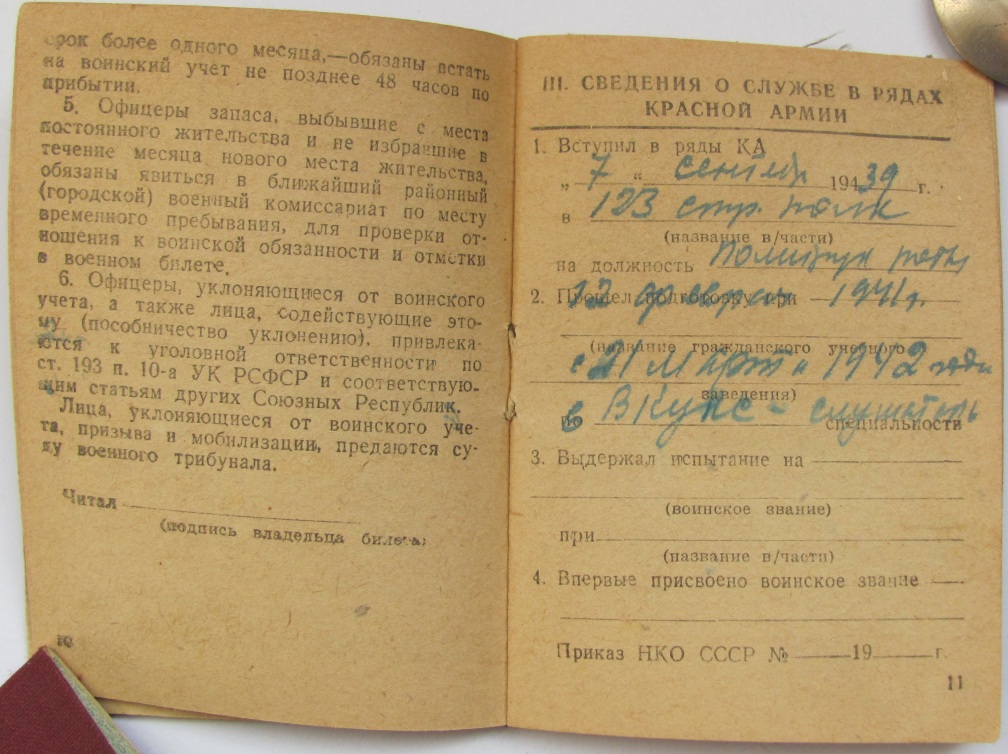 срок более одного месяца,—обязаны встать
на воинский учет не позднее 48 часов по
прибытии.
5. Офицеры запаса, выбывшие с места
постоянного жительства и не избравшие в
течение месяца нового места жительства,
обязаны явиться в ближайший районный
(городской) военный комиссариат по месту
временного пребывания, для проверки от-
ношения к воинской обязанности и отметки
в военном билете.
6. Офицеры, уклоняющиеся от воинского
учета, а также лица, содействующие это-
му (пособничество уклонению), привлека-
ются к уголовной ответственности по
ст. 193 п. 10-а УК РСФСР и соответствую-
щим статьям других Союзных Республик.
Лица, уклоняющиеся от воинского уче-
та, призыва и мобилизации, предаются су-
ду военного трибунала.
Читал
(подпись владельца билета)
10
III. СВЕДЕНИЯ О СЛУЖБЕ В РЯДАХ
КРАСНОЙ АРМИИ
1. Вступил в ряды КА
„ 7 “ сентября 194 39 г.
в 123 стр. полк
(название в/части)
на должность Политрук роты
2. Прошел подготовку при
12 февраля — 1941 г.
(название гражданского учебного
с 21 марта 1942 года
заведения)
по специальности
в слушатель
3. Выдержал испытание на
(воинское звание)
при
(название в/части)
4. Впервые присвоено воинское звание
Приказ НКО СССР № 19 г.
11